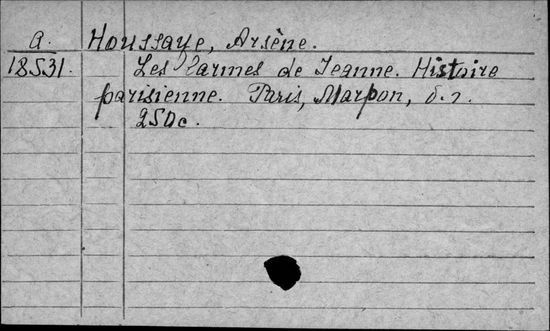 a. Houssaye, Arsène.
18531. Les larmes de Jeanne. Histoire
parisienne. Paris, Marpon, s.a.
250c.